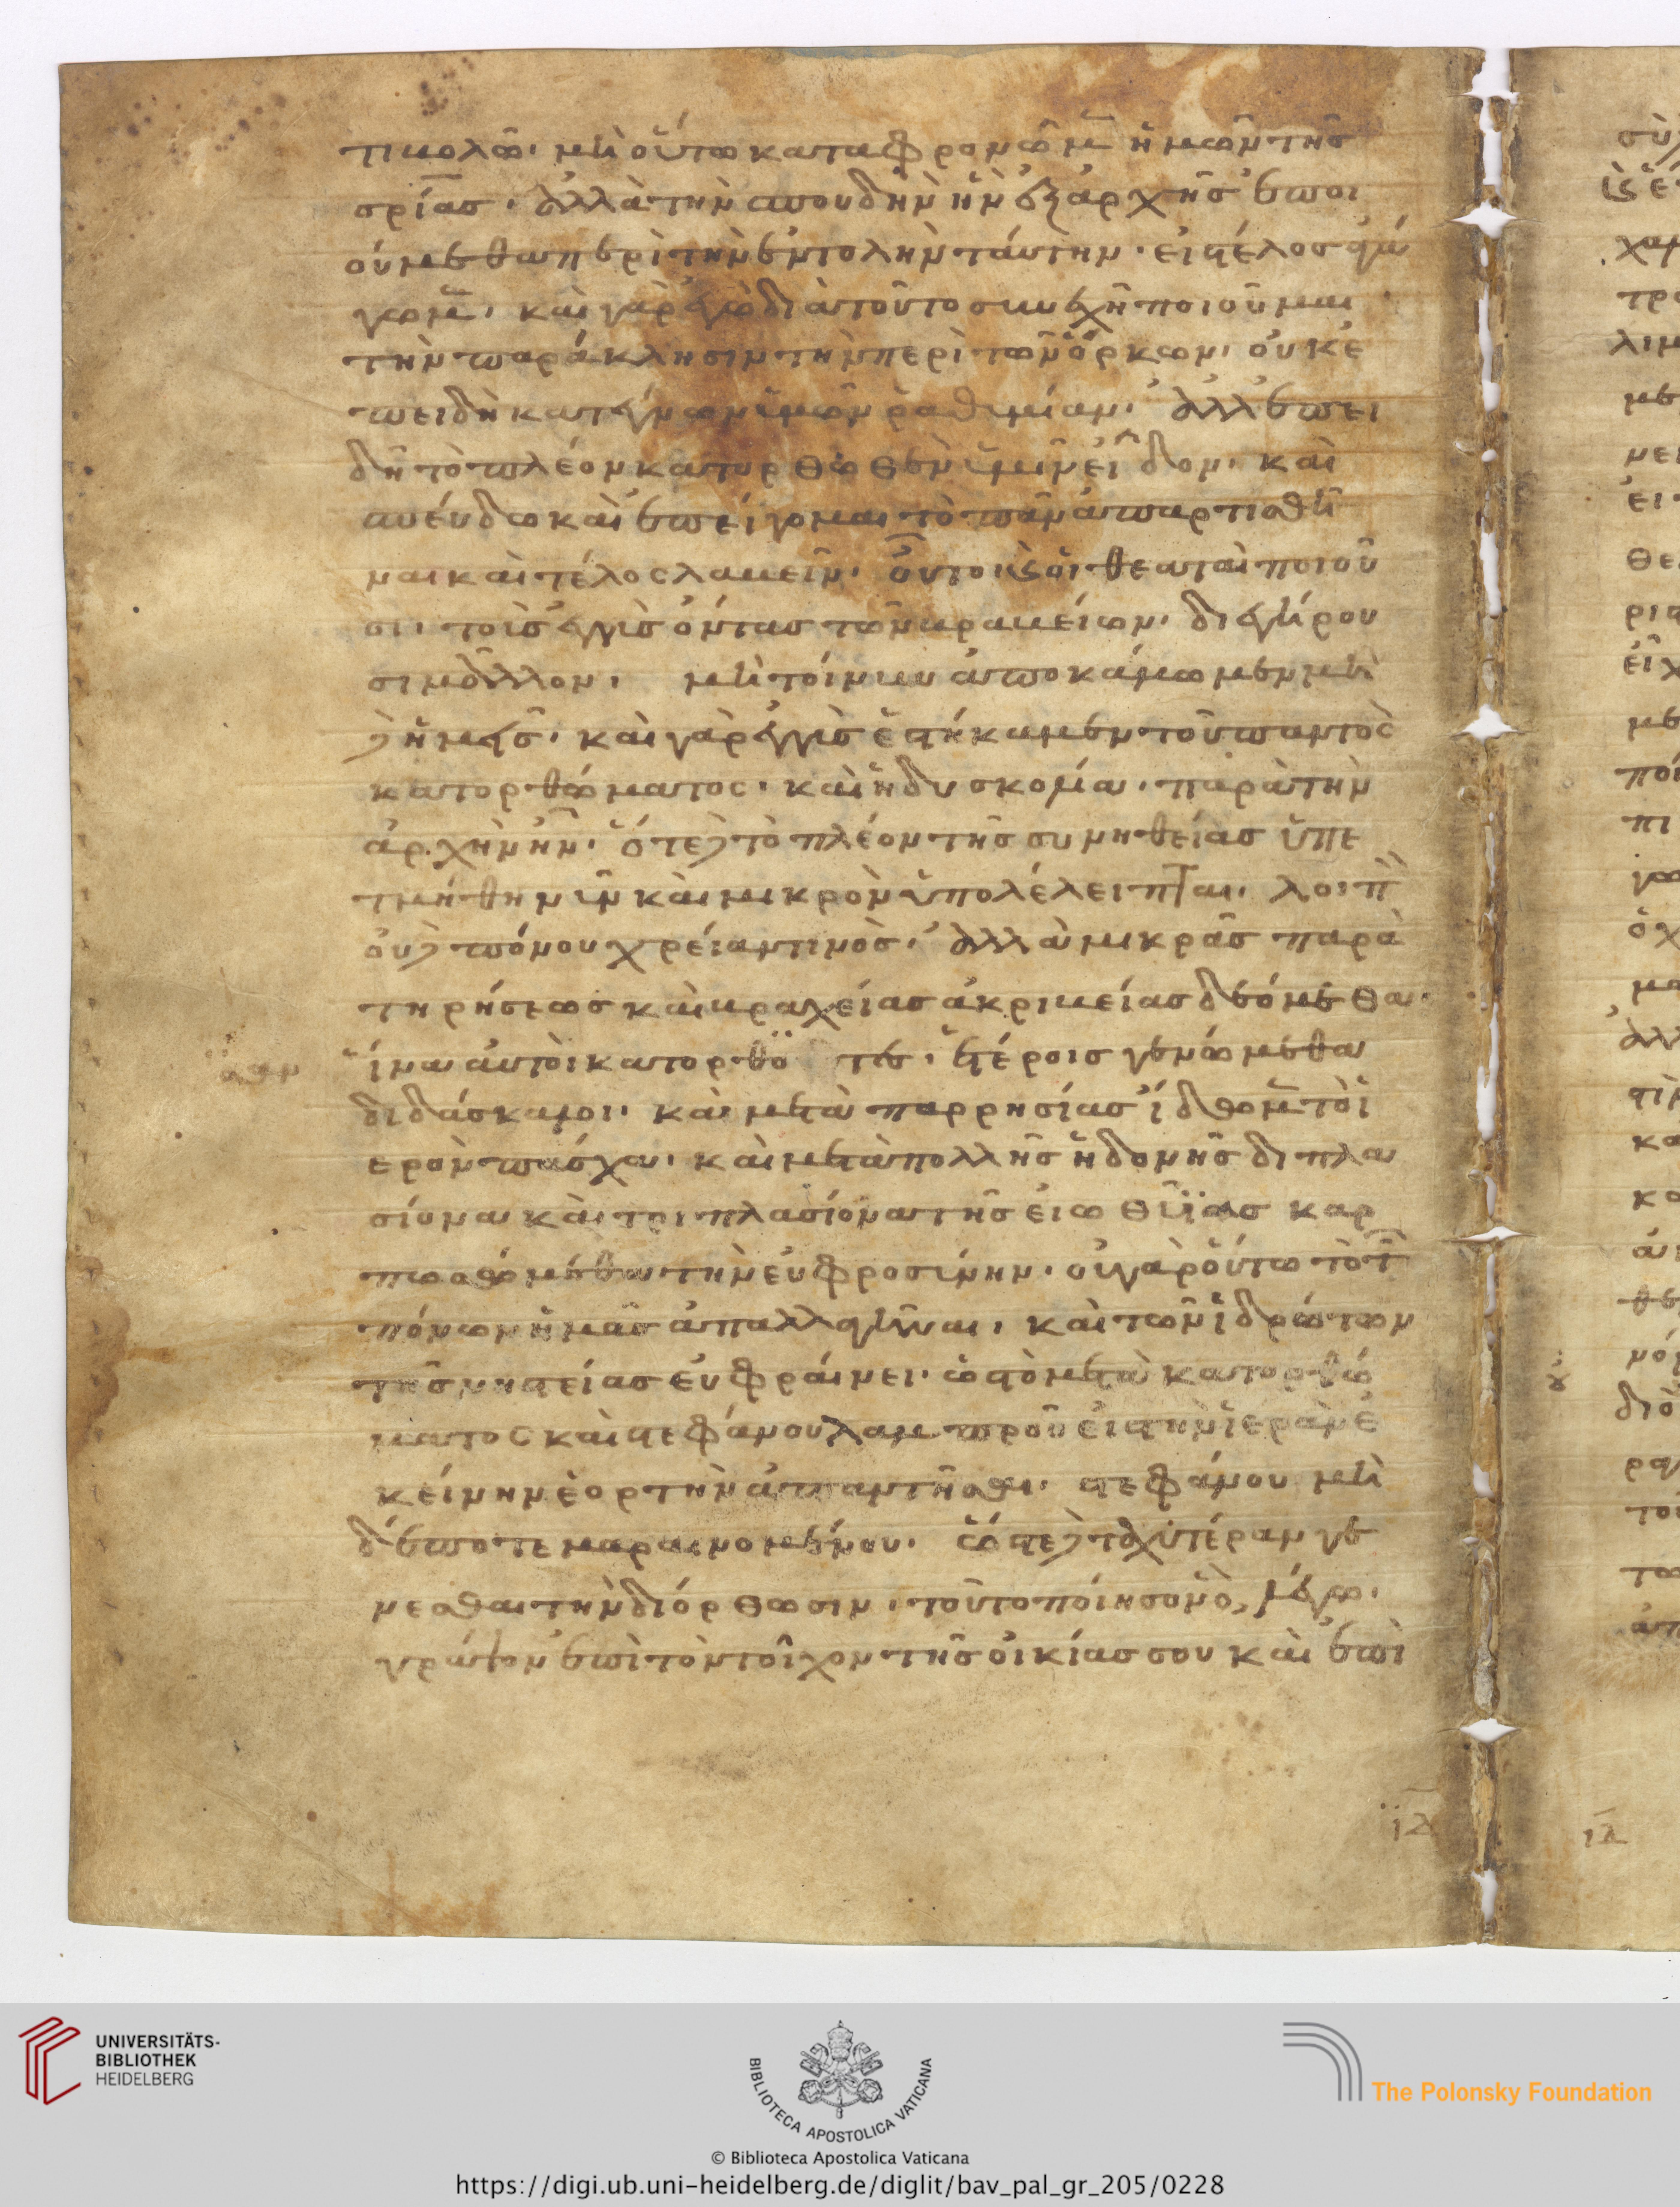 τιβολῶ· μὴ οὕτω καταφρονῶμεν ἡμῶν τῆς
σρίας· ἀλλὰ τὴν σπουδὴν ἣν ἐξἀρχῆς ἐποι
ούμεθα περὶ τὴν ἐντολὴν ταύτην· εἰς τέλος ἀγά
γωμεν· καὶ γὰρ ἐγὼ διατοῦτο συνεχῆ ποιοῦμαι
τὴν παράκλησιν τὴν περὶ τῶν ὅρκων· οὐκ ἐ
πειδὴ κατέγνων ὑμῶν ῥαθυμίαν· ἀλλ' ἐπει
δὴ τὸ πλέον κατορθωθὲν ὑμῖν εἶδον· καὶ
σπεύδω καὶ ἐπείγομαι τὸ πᾶν ἀπαρτισθῆ
ναι καὶ τέλος λαβεῖν· οὕτω κ οἱ θεαταὶ ποιοῦ
σι· τοὺς ἐγγὺς ὄντας τῶν βραβείων· διεγείρου
σι μᾶλλον· μὴ τοίνυν ἀποκάμωμεν μη
δὲ ἡμεῖς· καὶ γὰρ ἐγγὺς ἑστήκαμεν τοῦ παντὸς
κατορθώματος· καὶ ἡ δυσκολία· παρὰ τὴν
ἀρχὴν ἦν· ὅτε δὲ τὸ πλέον τῆς συνηθείας ὑπε
τμήθη νῦν καὶ μικρὸν ὑπολέλειπται· λοιπὸν
οὐδὲ πόνου χρεία τινὸς· ἀλλὰ μικρᾶς παρα
τηρήσεως καὶ βραχείας ἀκριβείας δεόμεθα·
ἵνα αὐτοὶ κατορθο τες· ἑτέροις γενώμεθα
διδάσκαλοι· καὶ μετὰ παρρησίας ἴδωμεν τὸ ἱ
ερὸν πάσχα· καὶ μετὰ πολλῆς ἡδονῆς διπλα
σίονα καὶ τριπλασίονα τῆς εἰωθυΐας καρ
πωσώμεθα τὴν εὐφροσύνην· οὐ γὰρ οὕτω τὸ τῶν
πόνων ἡμᾶς ἀπαλλαγῆναι· καὶ τῶν ἱδρώτων
τῆς νηστείας εὐφραίνει· ὡς τὸ μετὰ κατορθώ
ματος καὶ στεφάνου λαμπροῦ εἰς τὴν ἱερὰν ἐ
κείνην ἑορτὴν ἀπαντῆσαι· στεφάνου μη
δέποτε μαραινομένου· ὥστε δὲ ταχυτέραν γε
νέσθαι τὴν διόρθωσιν· τοῦτο ποίησον ὃ λέγω·
γράψον ἐπὶ τὸν τοῖχον τῆς οἰκίας σου καὶ ἐπὶ
UNIVERSITÄTS-
BIBLIOTHEK
HEIDELBERG
BIBLIOTECA APOSTOLICA VATICANA
The Polonsky Foundation
© Biblioteca Apostolica Vaticana
https://digi.ub.uni-heidelberg.de/diglit/bav_pal_gr_205/0228